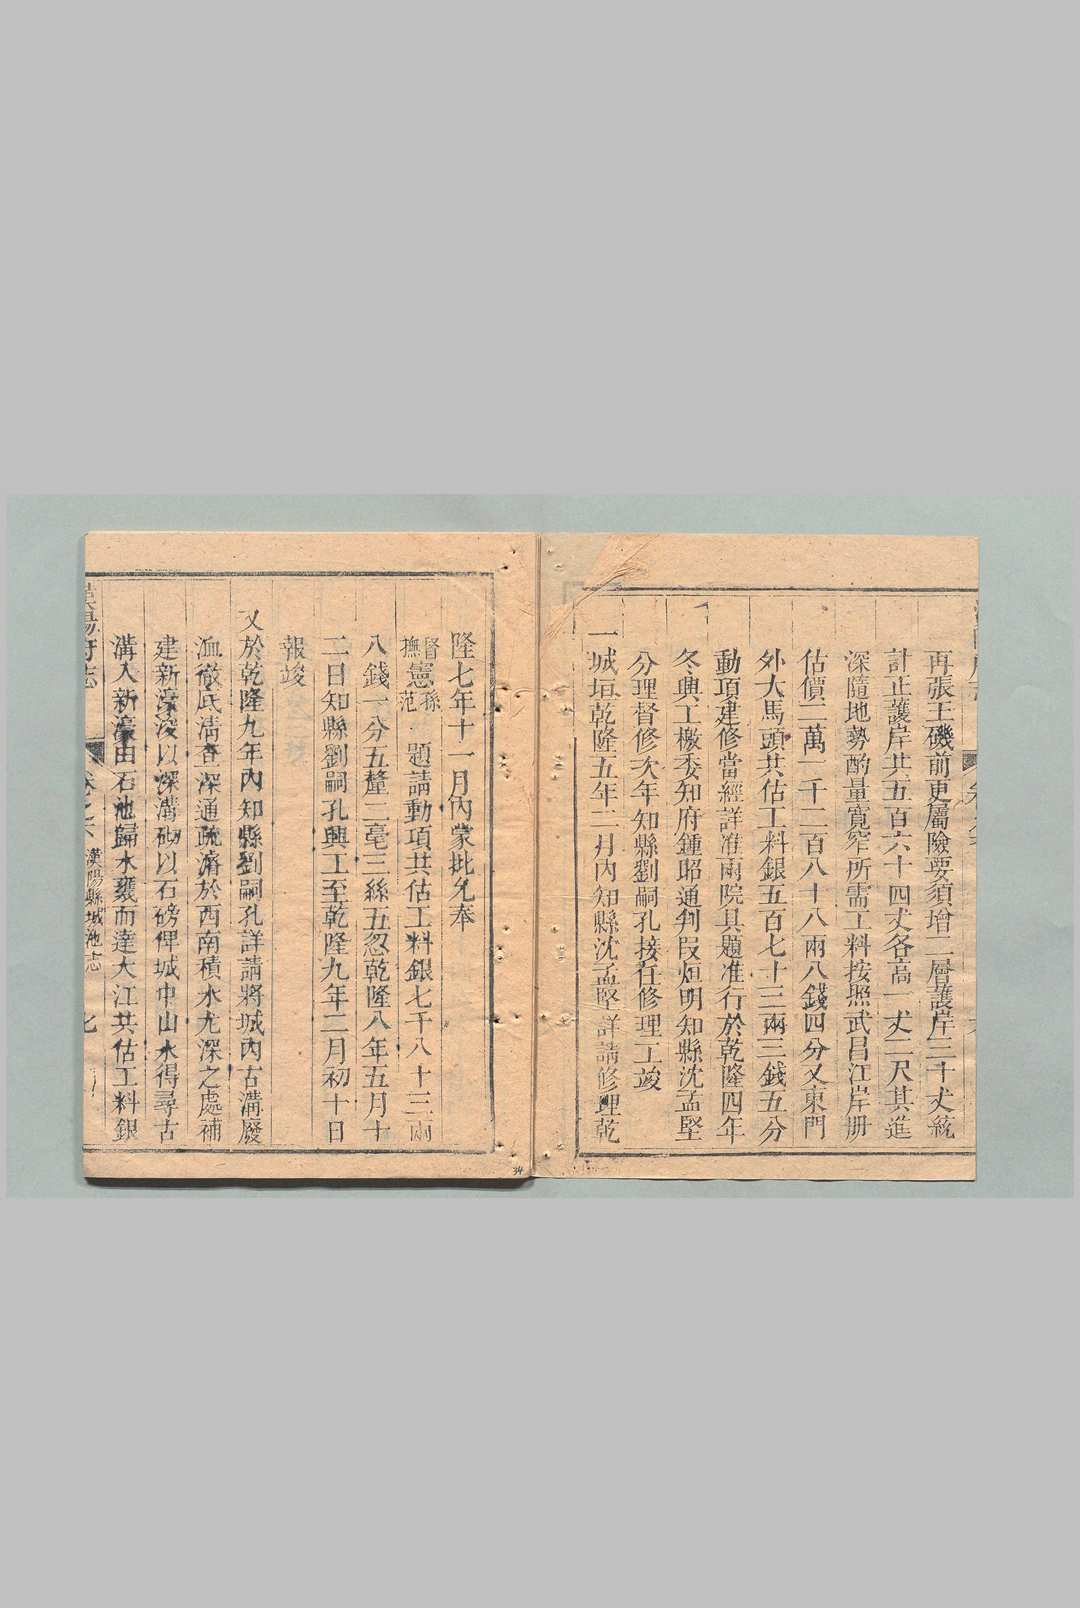 再張王磯前更屬險要須增二層護岸三十丈統
計正護岸共五百六十四丈各高一丈二尺其進
深隨地勢酌量寬窄所需工料按照武昌江岸册
估價二萬一千二百八十八兩八錢四分又東門
外大馬頭共估工料銀五百七十三兩三錢五分
動項建修當經詳准兩院具題准行於乾隆四年
冬興工檄委知府鍾昭通判段烜明知縣沈孟堅
分理督修次年知縣劉嗣孔接任修理工竣
一城垣乾隆五年二月內知縣沈孟堅詳請修理乾
隆七年十一月內蒙批允奉
督撫憲孫范題請動項共估工料銀七千八十三兩
八錢一分五釐二毫三絲五忽乾隆八年五月十
二日知縣劉嗣孔興工至乾隆九年二月初十日
報竣
又於乾隆九年內知縣劉嗣孔詳請將城內古溝廢
洫徹底清查深通疏濬於西南積水尤深之處補
建新濠浚以深溝砌以石磅俾城中山水得尋古
溝入新濠由石池歸水甕而達大江共估工料銀
漢陽府志
卷之六
漢陽縣城池志
七
34